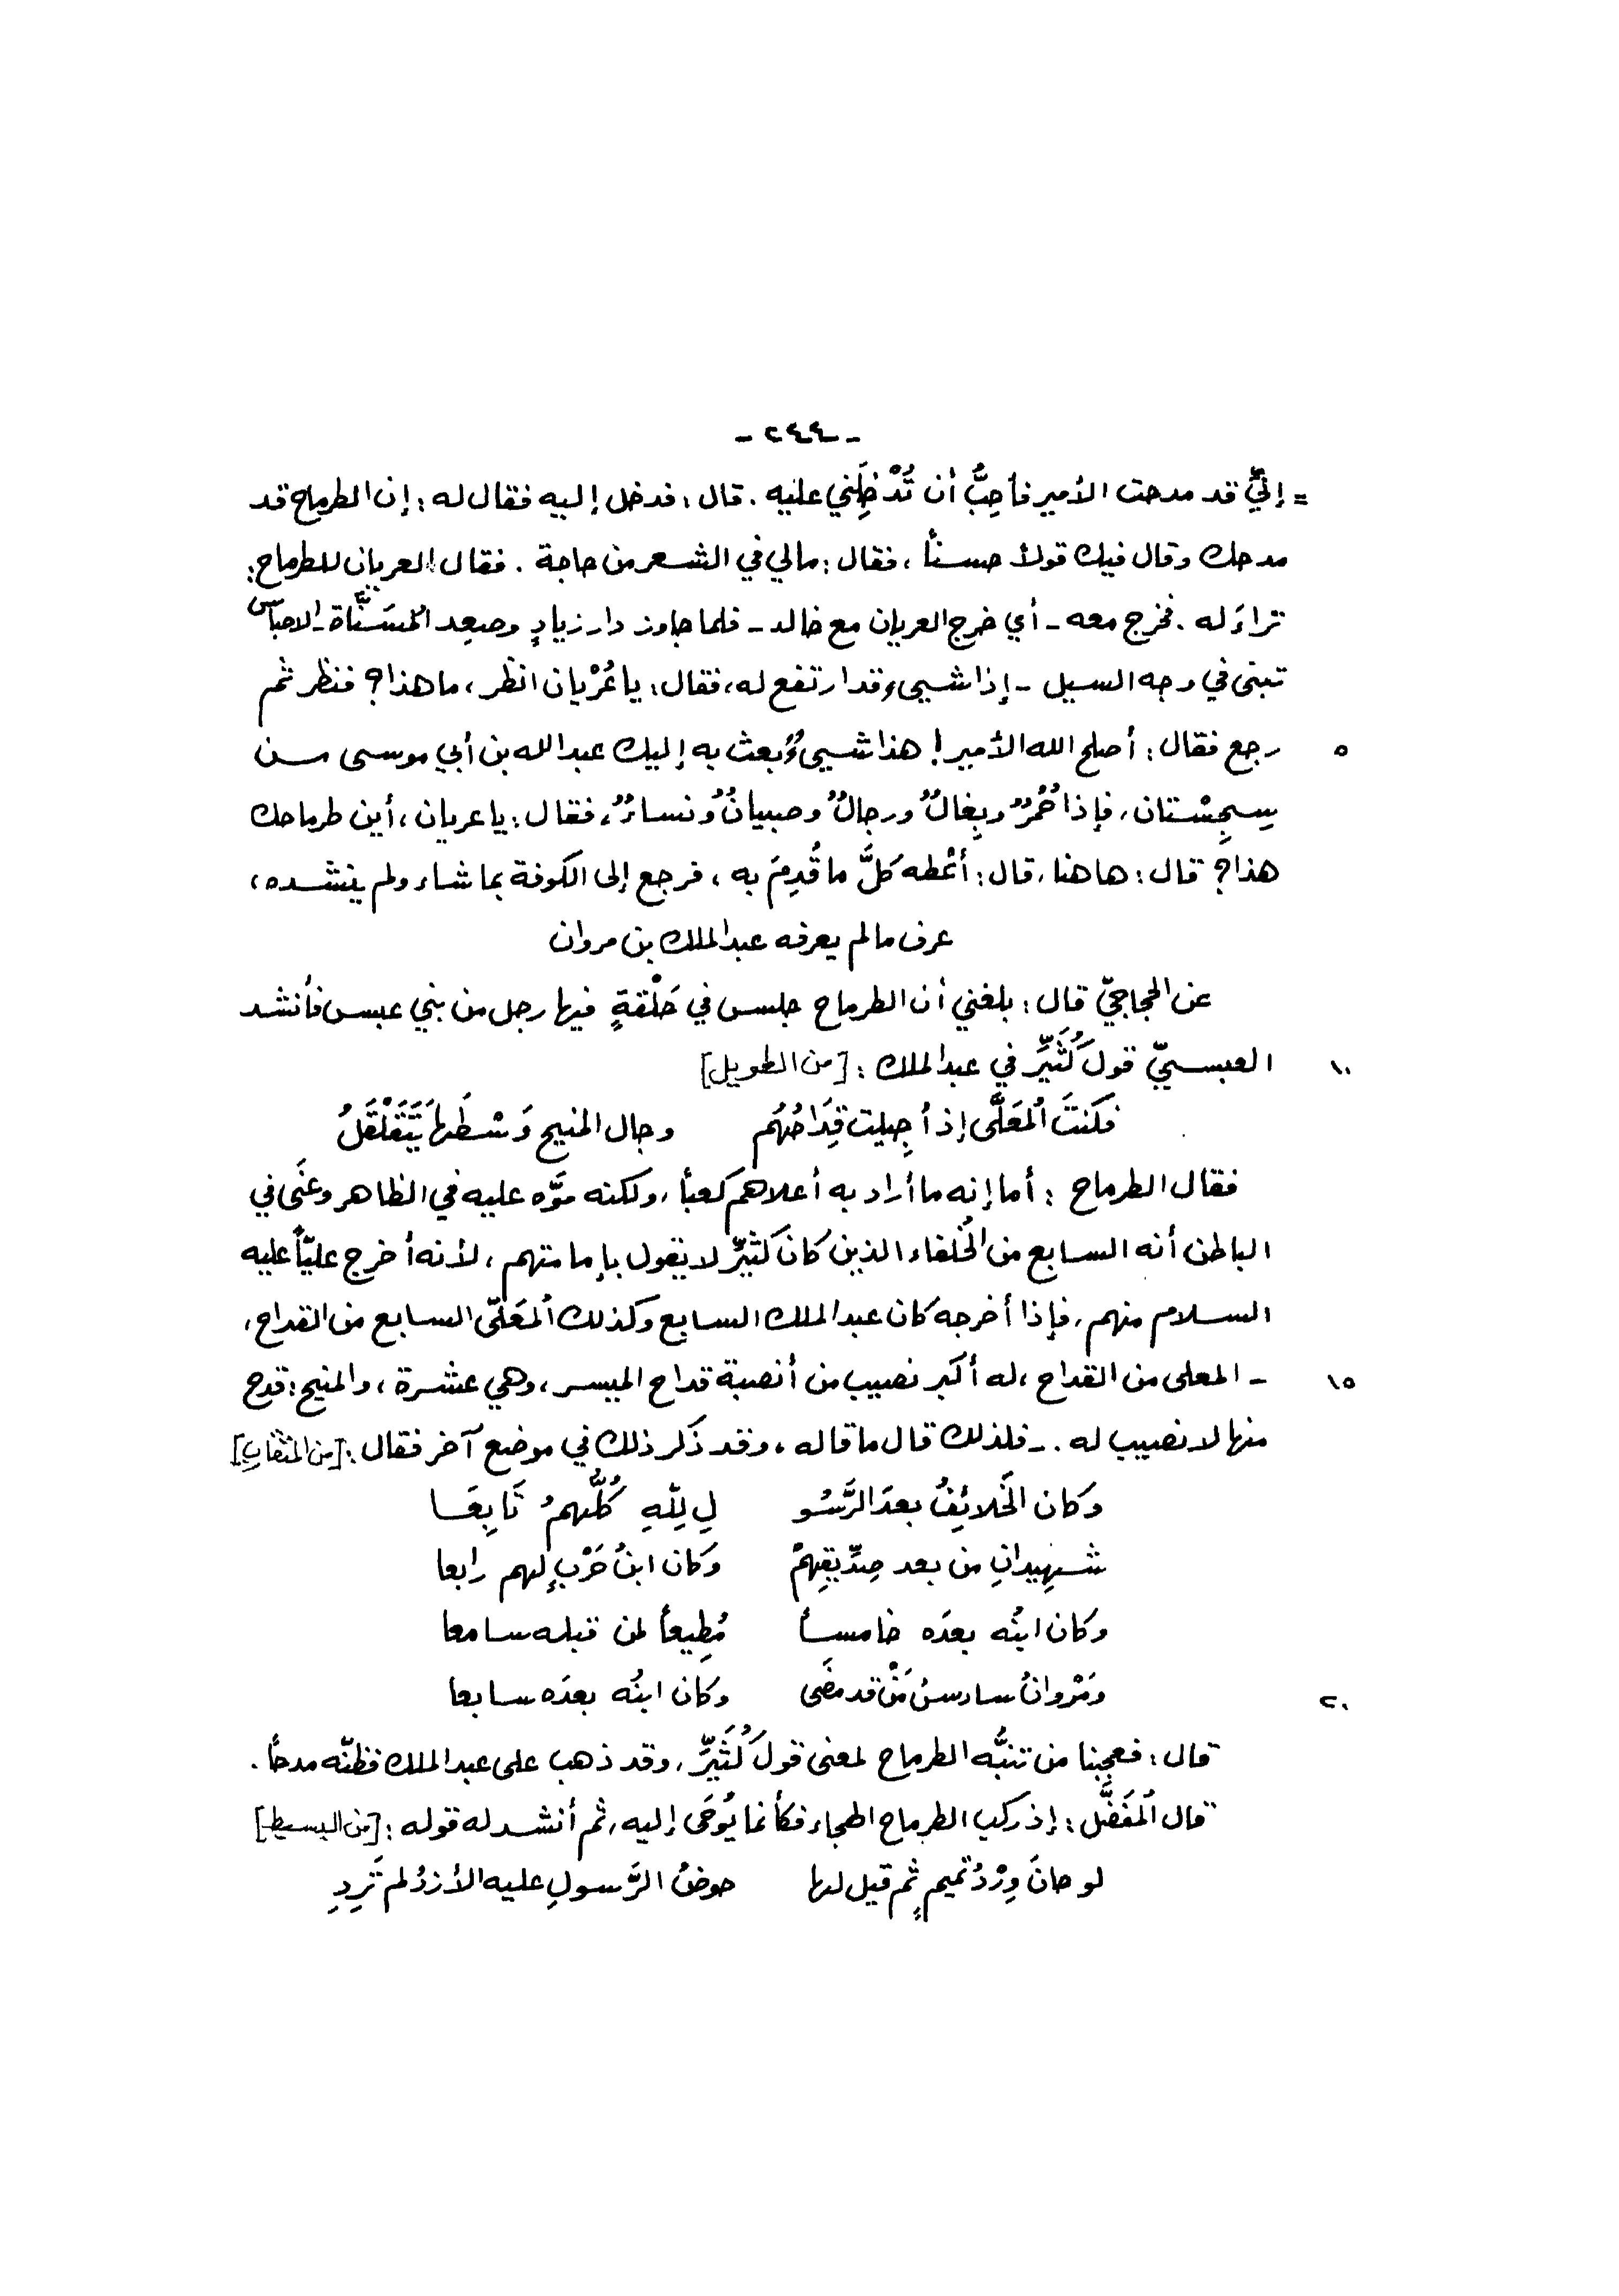 - ٢٤٤ -
= إنّي قد مدحت الأمير فأُحِبُّ أن تُدْخِلَني عليه . قال : فدخل إليه فقال له : إن الطرماح قد
مدحك وقال فيك قولاً حسناً ، فقال : مالي في الشعر من حاجة . فقال العريان للطرماح :
تراءَ له . فخرج معه - أي خرج العريان مع خالد - فلما جاوز دار زيادٍ وصعِد المُسَنَّاة - الاحباس
تبنى في وجه السيل - إذا شيىء قد ارتفع له ، فقال : يا عُرْيان انظر ، ما هذا ؟ فنظر ثم
٥ رجع فقال : أصلح الله الأمير ! هذا شيىءٌ بعث به إليك عبد الله بن أبي موسى من
سِجِسْتان ، فإذا حُمُرٌ وبِغالٌ ورجالٌ وصبيانٌ ونساءٌ ، فقال : يا عريان ، أين طرماحك
هذا ؟ قال : هاهنا ، قال : أعْطه كلَّ ما قُدِمَ به ، فرجع إلى الكوفة بما شاء ولم ينشده ،
عرف مالم يعرفه عبد الملك بن مروان
عن الحجاجيّ قال : بلغني أن الطرماح جلس في حَلْقةٍ فيها رجل من بني عبس فأنشد
١٠ العبسيّ قولَ كُثَيِّرٍ في عبد الملك : [من الطويل]
فكنتَ المُعَلَّى إذ أُجِيلت قِدَاحُهُم وجال المنيح وَسْطَها يَتَقَلْقَلُ
فقال الطرماح : أما إنه ما أراد به أعلاهم كعباً ، ولكنه موَّه عليه في الظاهر وعَنَى في
الباطن أنه السابع من الخُلفاء الذين كان كُثيِّرٌ لا يقول بإمامتهم ، لأنه أخرج عليّاً عليه
السلام منهم ، فإذا أخرجه كان عبد الملك السابع وكذلك المُعَلّى السابع من القداح ،
١٥ - المعلى من القداح ، له أكبر نصيب من أنصبة قداح الميسر ، وهي عشرة ، والمنيح : قدح
منها لا نصيب له . - فلذلك قال ما قاله ، وقد ذَكر ذلك في موضع آخر فقال : [من المتقارب]
وكان الخَلائِفُ بعدَ الرَّسُو لِ لِلّهِ كُلُّهمُ تَابِعَا
شهِيدانِ من بعد صِدِّيقِهِمْ وكان ابنُ حَرْبٍ لهم رابعا
وكان ابنُه بعدَه خامساً مُطِيعاً لمن قبله سامعا
٢٠ ومَرْوانُ سادسُ مَنْ قد مضَى وكان ابنُه بعدَه سابعا
قال : فعجبنا من تنبُّه الطرماح لمعنى قول كُثَيِّرٍ ، وقد ذهب على عبد الملك فظنّه مدحاً .
قال المُفَضَّل : إذ ركب الطرماح الهجاء فكأنما يُوحَى إليه ، ثم أنشد له قوله : [من البسيط]
لو حانَ وِرْدُ تميمٍ ثم قيل لها حوضُ الرَّسولِ عليه الأزدُ لم تَرِدِ